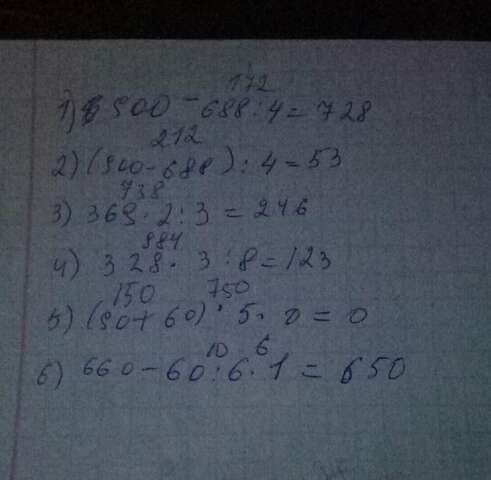 172
1) 900 - 688 : 4 = 728
212
2) (900 - 688) : 4 = 53
738
3) 369 · 2 : 3 = 246
984
4) 328 · 3 : 8 = 123
150 750
5) (90 + 60) · 5 · 0 = 0
10 6
6) 660 - 60 : 6 · 1 = 650